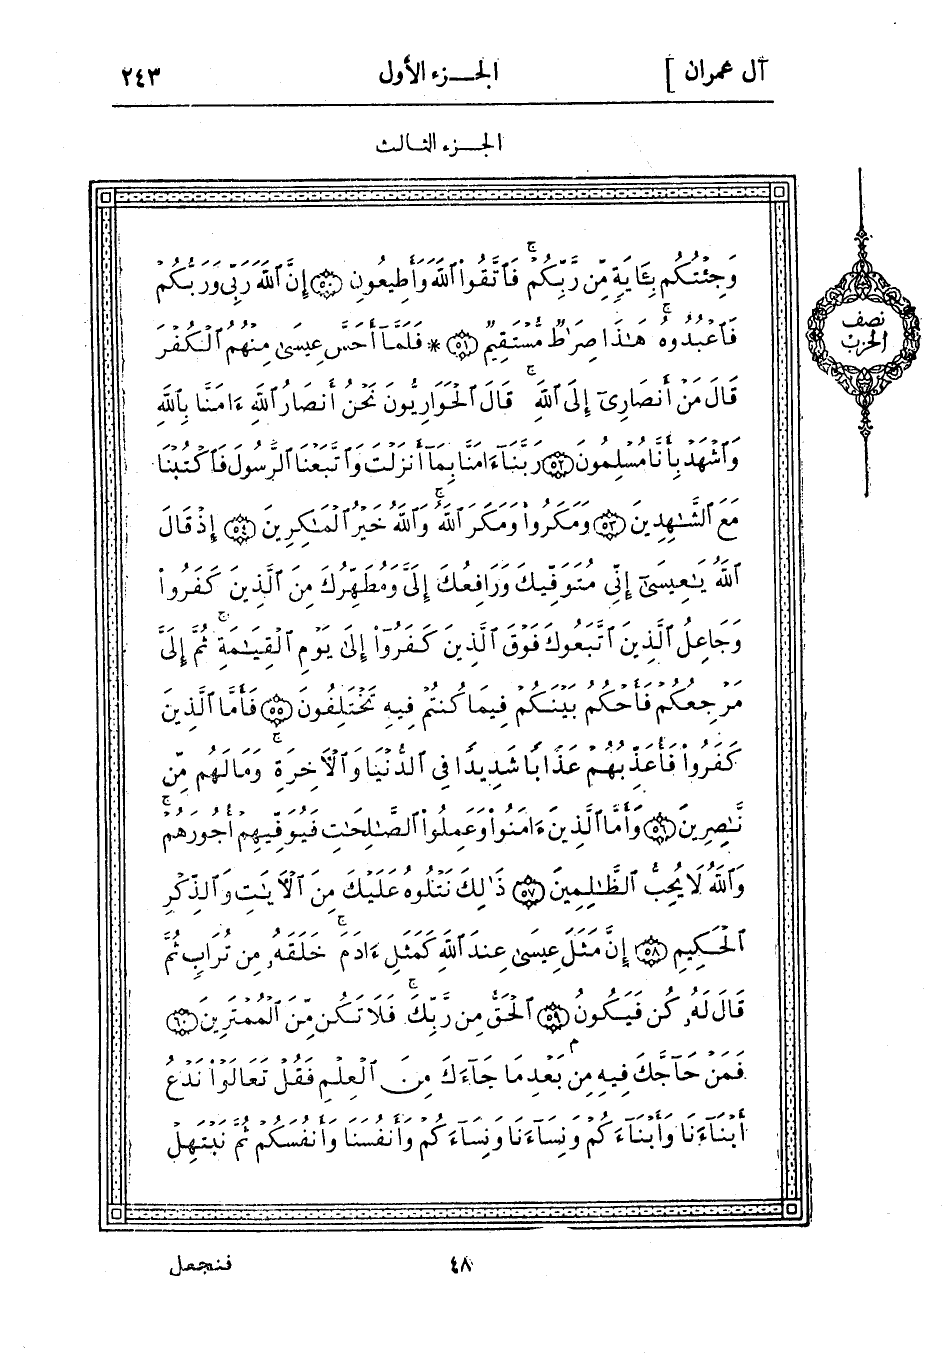 آل عمران ] الجـــزء الأول ٢٤٣
الجـــزء الثـالـث
نصف
الحزب
وَجِئْتُكُم بِـَٔايَةٍ مِّن رَّبِّكُمْ ۚ فَٱتَّقُوا۟ ٱللَّهَ وَأَطِيعُونِ ٥٠ إِنَّ ٱللَّهَ رَبِّى وَرَبُّكُمْ
فَٱعْبُدُوهُ ۚ هَـٰذَا صِرَٰطٌ مُّسْتَقِيمٌ ٥١ * فَلَمَّآ أَحَسَّ عِيسَىٰ مِنْهُمُ ٱلْكُفْرَ
قَالَ مَنْ أَنصَارِىٓ إِلَى ٱللَّهِ ۚ قَالَ ٱلْحَوَارِيُّونَ نَحْنُ أَنصَارُ ٱللَّهِ ءَامَنَّا بِٱللَّهِ
وَٱشْهَدْ بِأَنَّا مُسْلِمُونَ ٥٢ رَبَّنَآ ءَامَنَّا بِمَآ أَنزَلْتَ وَٱتَّبَعْنَا ٱلرَّسُولَ فَٱكْتُبْنَا
مَعَ ٱلشَّـٰهِدِينَ ٥٣ وَمَكَرُوا۟ وَمَكَرَ ٱللَّهُ ۚ وَٱللَّهُ خَيْرُ ٱلْمَـٰكِرِينَ ٥٤ إِذْ قَالَ
ٱللَّهُ يَـٰعِيسَىٰٓ إِنِّى مُتَوَفِّيكَ وَرَافِعُكَ إِلَىَّ وَمُطَهِّرُكَ مِنَ ٱلَّذِينَ كَفَرُوا۟
وَجَاعِلُ ٱلَّذِينَ ٱتَّبَعُوكَ فَوْقَ ٱلَّذِينَ كَفَرُوٓا۟ إِلَىٰ يَوْمِ ٱلْقِيَـٰمَةِ ۚ ثُمَّ إِلَىَّ
مَرْجِعُكُمْ فَأَحْكُمُ بَيْنَكُمْ فِيمَا كُنتُمْ فِيهِ تَخْتَلِفُونَ ٥٥ فَأَمَّا ٱلَّذِينَ
كَفَرُوا۟ فَأُعَذِّبُهُمْ عَذَابًا شَدِيدًا فِى ٱلدُّنْيَا وَٱلْـَٔاخِرَةِ ۚ وَمَا لَهُم مِّن
نَّـٰصِرِينَ ٥٦ وَأَمَّا ٱلَّذِينَ ءَامَنُوا۟ وَعَمِلُوا۟ ٱلصَّـٰلِحَـٰتِ فَيُوَفِّيهِمْ أُجُورَهُمْ ۚ
وَٱللَّهُ لَا يُحِبُّ ٱلظَّـٰلِمِينَ ٥٧ ذَٰلِكَ نَتْلُوهُ عَلَيْكَ مِنَ ٱلْـَٔايَـٰتِ وَٱلذِّكْرِ
ٱلْحَكِيمِ ٥٨ إِنَّ مَثَلَ عِيسَىٰ عِندَ ٱللَّهِ كَمَثَلِ ءَادَمَ ۚ خَلَقَهُۥ مِن تُرَابٍ ثُمَّ
قَالَ لَهُۥ كُن فَيَكُونُ ٥٩ ٱلْحَقُّ مِن رَّبِّكَ ۚ فَلَا تَكُن مِّنَ ٱلْمُمْتَرِينَ ٦٠
فَمَنْ حَآجَّكَ فِيهِ مِنۢ بَعْدِ مَا جَآءَكَ مِنَ ٱلْعِلْمِ فَقُلْ تَعَالَوْا۟ نَدْعُ
أَبْنَآءَنَا وَأَبْنَآءَكُمْ وَنِسَآءَنَا وَنِسَآءَكُمْ وَأَنفُسَنَا وَأَنفُسَكُمْ ثُمَّ نَبْتَهِلْ
٤٨ فنجعل